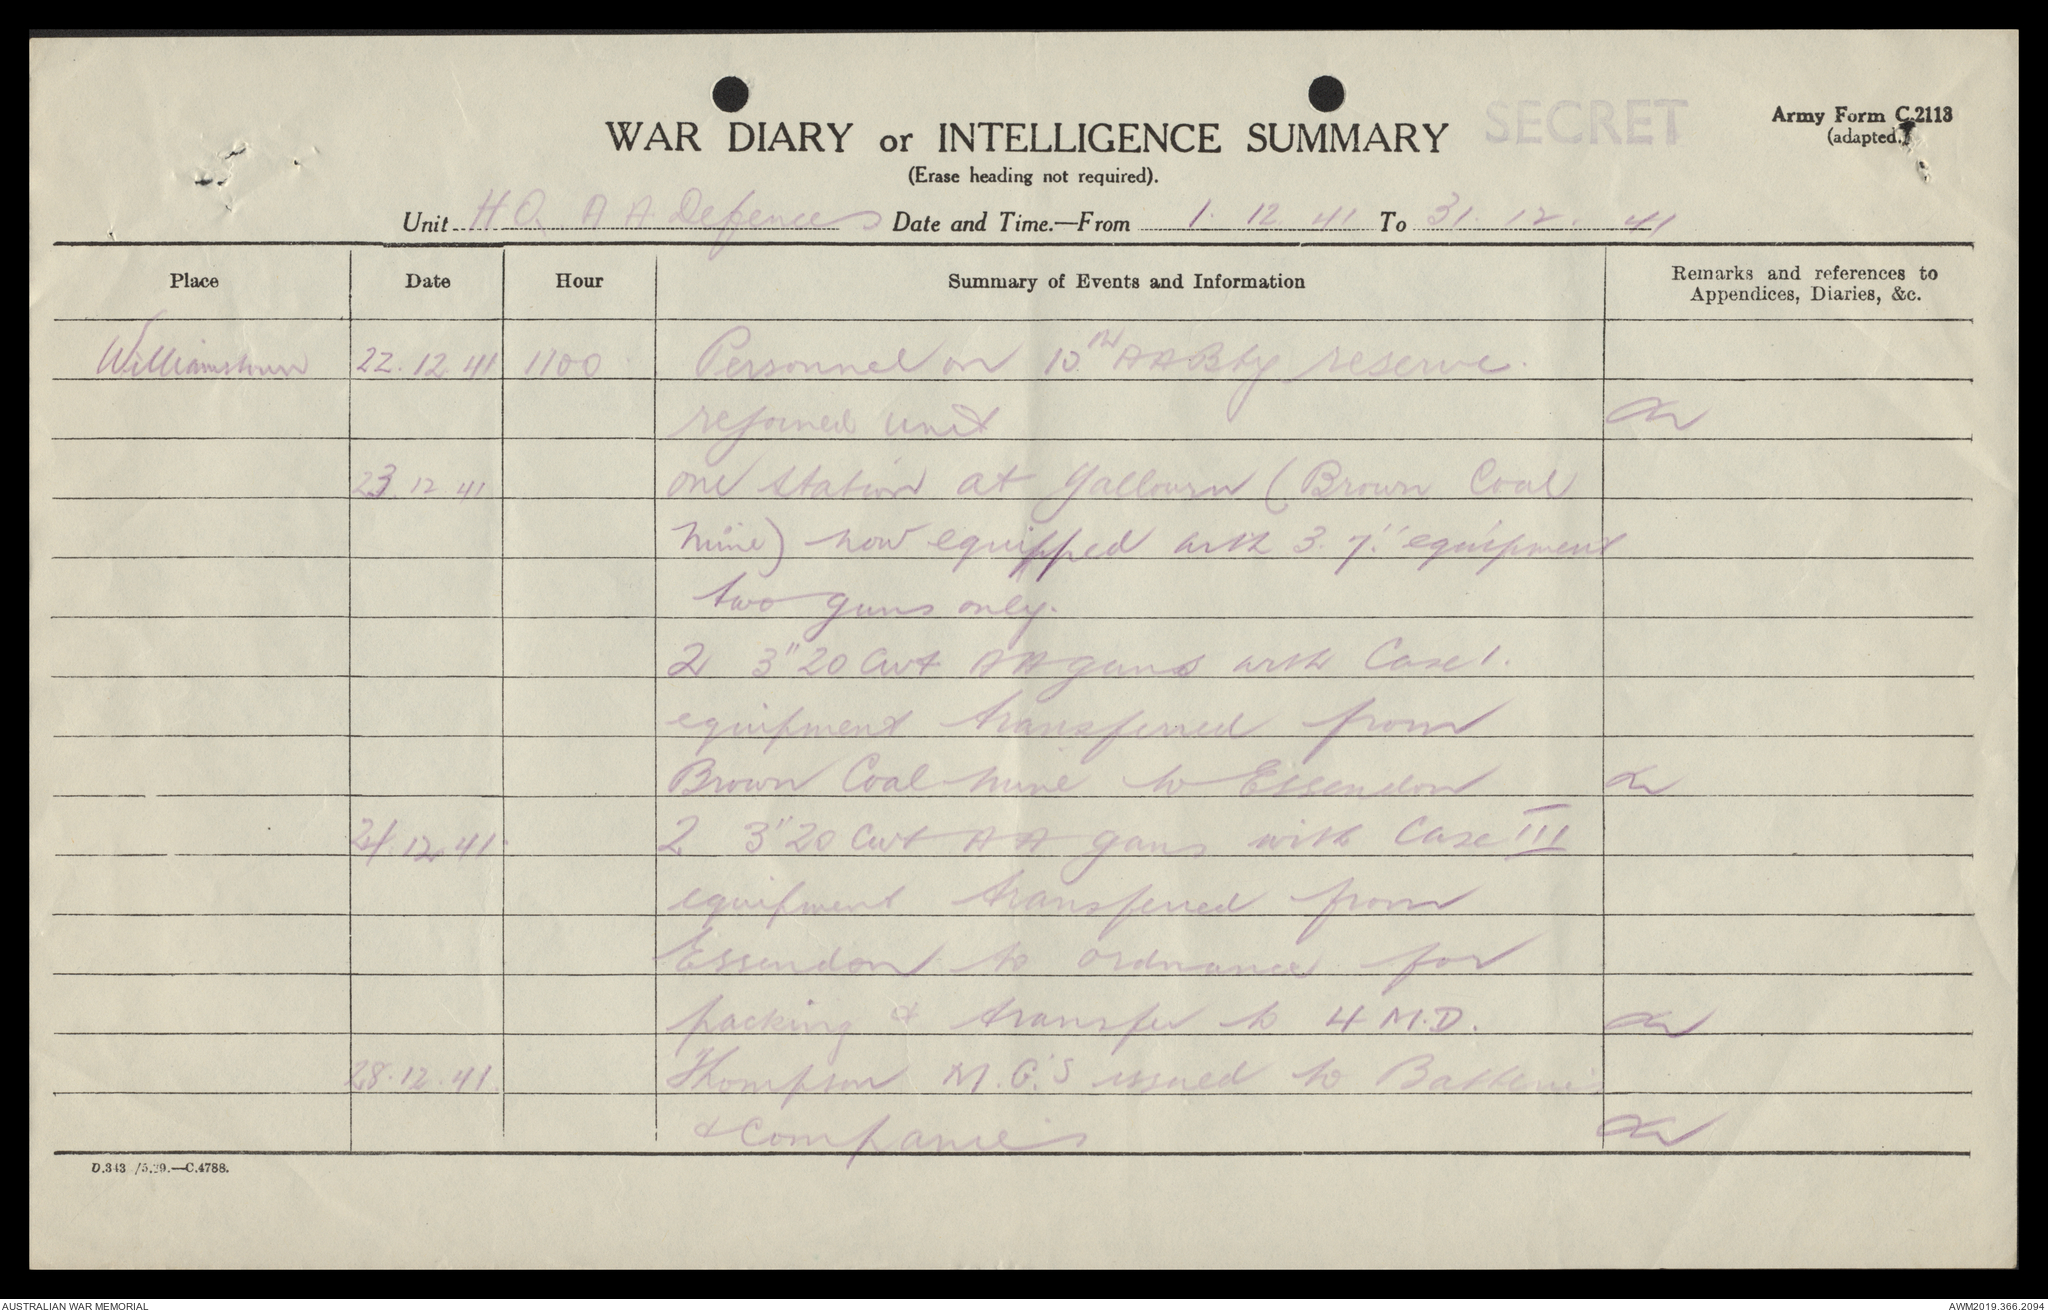 SECRET
Army Form C.2118
(adapted.)
WAR DIARY or INTELLIGENCE SUMMARY
(Erase heading not required).
Unit H.Q. A A Defences Date and Time.—From 1. 12 41 To 31. 12. 41
Place Date Hour Summary of Events and Information Remarks and references to
Appendices, Diaries, &c.
Williamstown 22.12.41 1100 Personnel on 10th A A Bty reserve.
rejoined unit
23.12 41 one station at Yallourn (Brown Coal
mine) now equipped with 3.7." equipment
two guns only.
2 3" 20 Cwt A A guns with Case 1.
equipment transferred from
Brown Coal mine to Essendon
24.12.41 2 3" 20 Cwt A A guns with Case III
equipment transferred from
Essendon to ordnance for
packing & transfer to 4 M.D.
28.12.41. Thompson M.G.'S issued to Batteries
& Companies
D.343 /5.29.—C.4788.
AUSTRALIAN WAR MEMORIAL AWM2019.366.2094